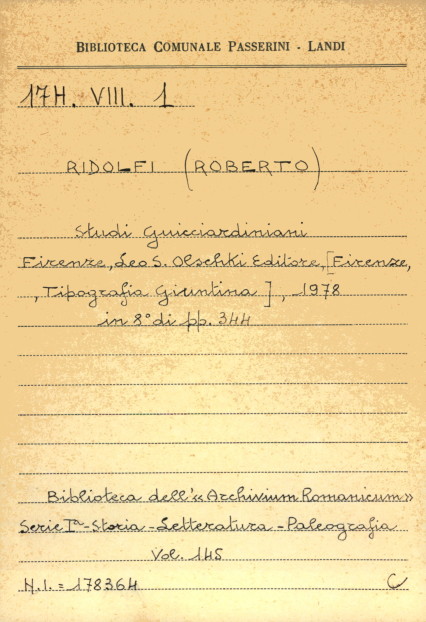 BIBLIOTECA COMUNALE PASSERINI - LANDI
17H. VIII. 1
RIDOLFI (ROBERTO)
Studi Guicciardiniani
Firenze, Leo S. Olschki Editore, [Firenze,
, Tipografia Giuntina], 1978
in 8° di pp. 344
Biblioteca dell'«Archivium Romanicum»
Serie Iª - Storia - Letteratura - Paleografia
Vol. 145
N.I. = 178364 C